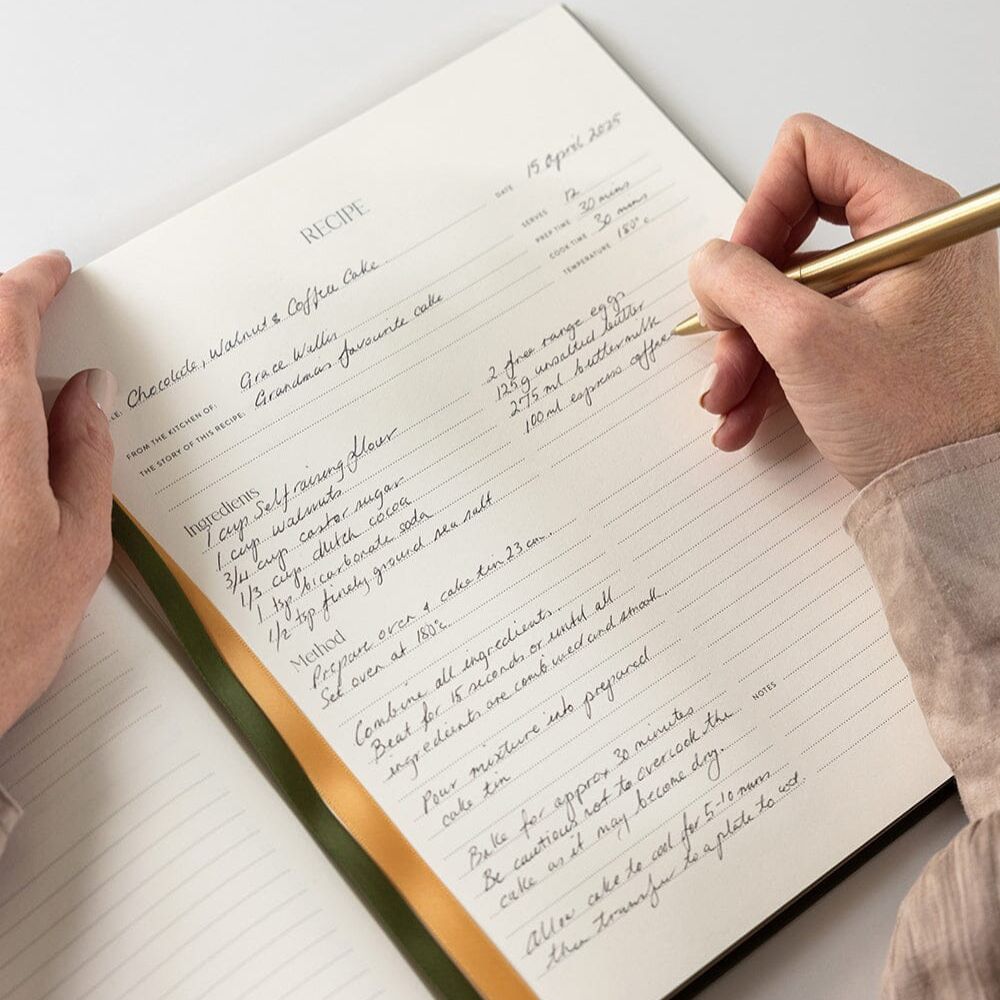 RECIPE
DATE 15 April 2025
SERVES 12
PREP TIME 30 mins
COOK TIME 30 mins
TEMPERATURE 180°c
LE: Chocolate, Walnut & Coffee Cake
FROM THE KITCHEN OF: Grace Wallis
THE STORY OF THIS RECIPE: Grandmas favourite cake
Ingredients
1 cup Self raising flour
1 cup walnuts
3/4 cup castor sugar
1/3 cup dutch cocoa
1 tsp bicarbonate soda
1/2 tsp finely ground sea salt
2 free range eggs
125g unsalted butter
275 ml buttermilk
100 ml espresso coffee
Method
Prepare oven & cake tin 23 cm.
Set oven at 180°c.
Combine all ingredients.
Beat for 15 seconds or until all
ingredients are combined and smooth.
Pour mixture into prepared
cake tin
Bake for approx 30 minutes
Be cautious not to overcook the
cake as it may become dry.
Allow cake to cool for 5-10 mins
then transfer to a plate to cool.
NOTES